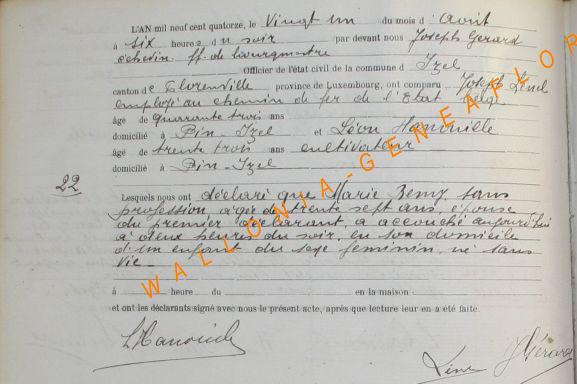 L'AN mil neuf cent quatorze, le Vingt un du mois d'Août
à six heures du soir par devant nous Joseph Gerard
échevin ff. de bourgmestre
Officier de l'état civil de la commune d'Izel
canton de Florenville province de Luxembourg, ont comparu Joseph
employé au chemin de fer de l'Etat belge
âgé de quarante trois ans
domicilié à Pin-Izel et Léon
âgé de trente trois ans cultivateur
domicilié à Pin-Izel
22
Lesquels nous ont déclaré que Marie Remy sans
profession, âgée de trente sept ans, épouse
du premier déclarant, a accouché aujourd'hui
à deux heures du soir, en son domicile
d'un enfant du sexe feminin, né sans
vie.
à heure du en la maison
et ont les déclarants signé avec nous le présent acte, après que lecture leur en a été faite.
J Gérard
WALLONIA-GENEAFLOR